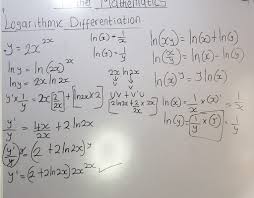 Mathematics
Logarithmic Differentiation
y = 2x^{2x}
ln y = ln(2x)^{2x}
ln y = 2x ln 2x
y' × 1/y = 2x[2/2x] + [ln2x × 2]
y'/y = 4x/2x + 2 ln 2x
(y'/y)y = (2 + 2 ln 2x)y
y' = (2 + 2 ln 2x) 2x^{2x} ✓
ln(x) = 1/x
ln(y) = 1/y
2x ln 2x
u v
uv' + v'u
ln(xy) = ln(x) + ln(y)
ln(x/y) = ln(x) − ln(y)
ln(x)^y = y ln(x)
ln(x) = 1/x × (x)' = 1/x
= 1/y